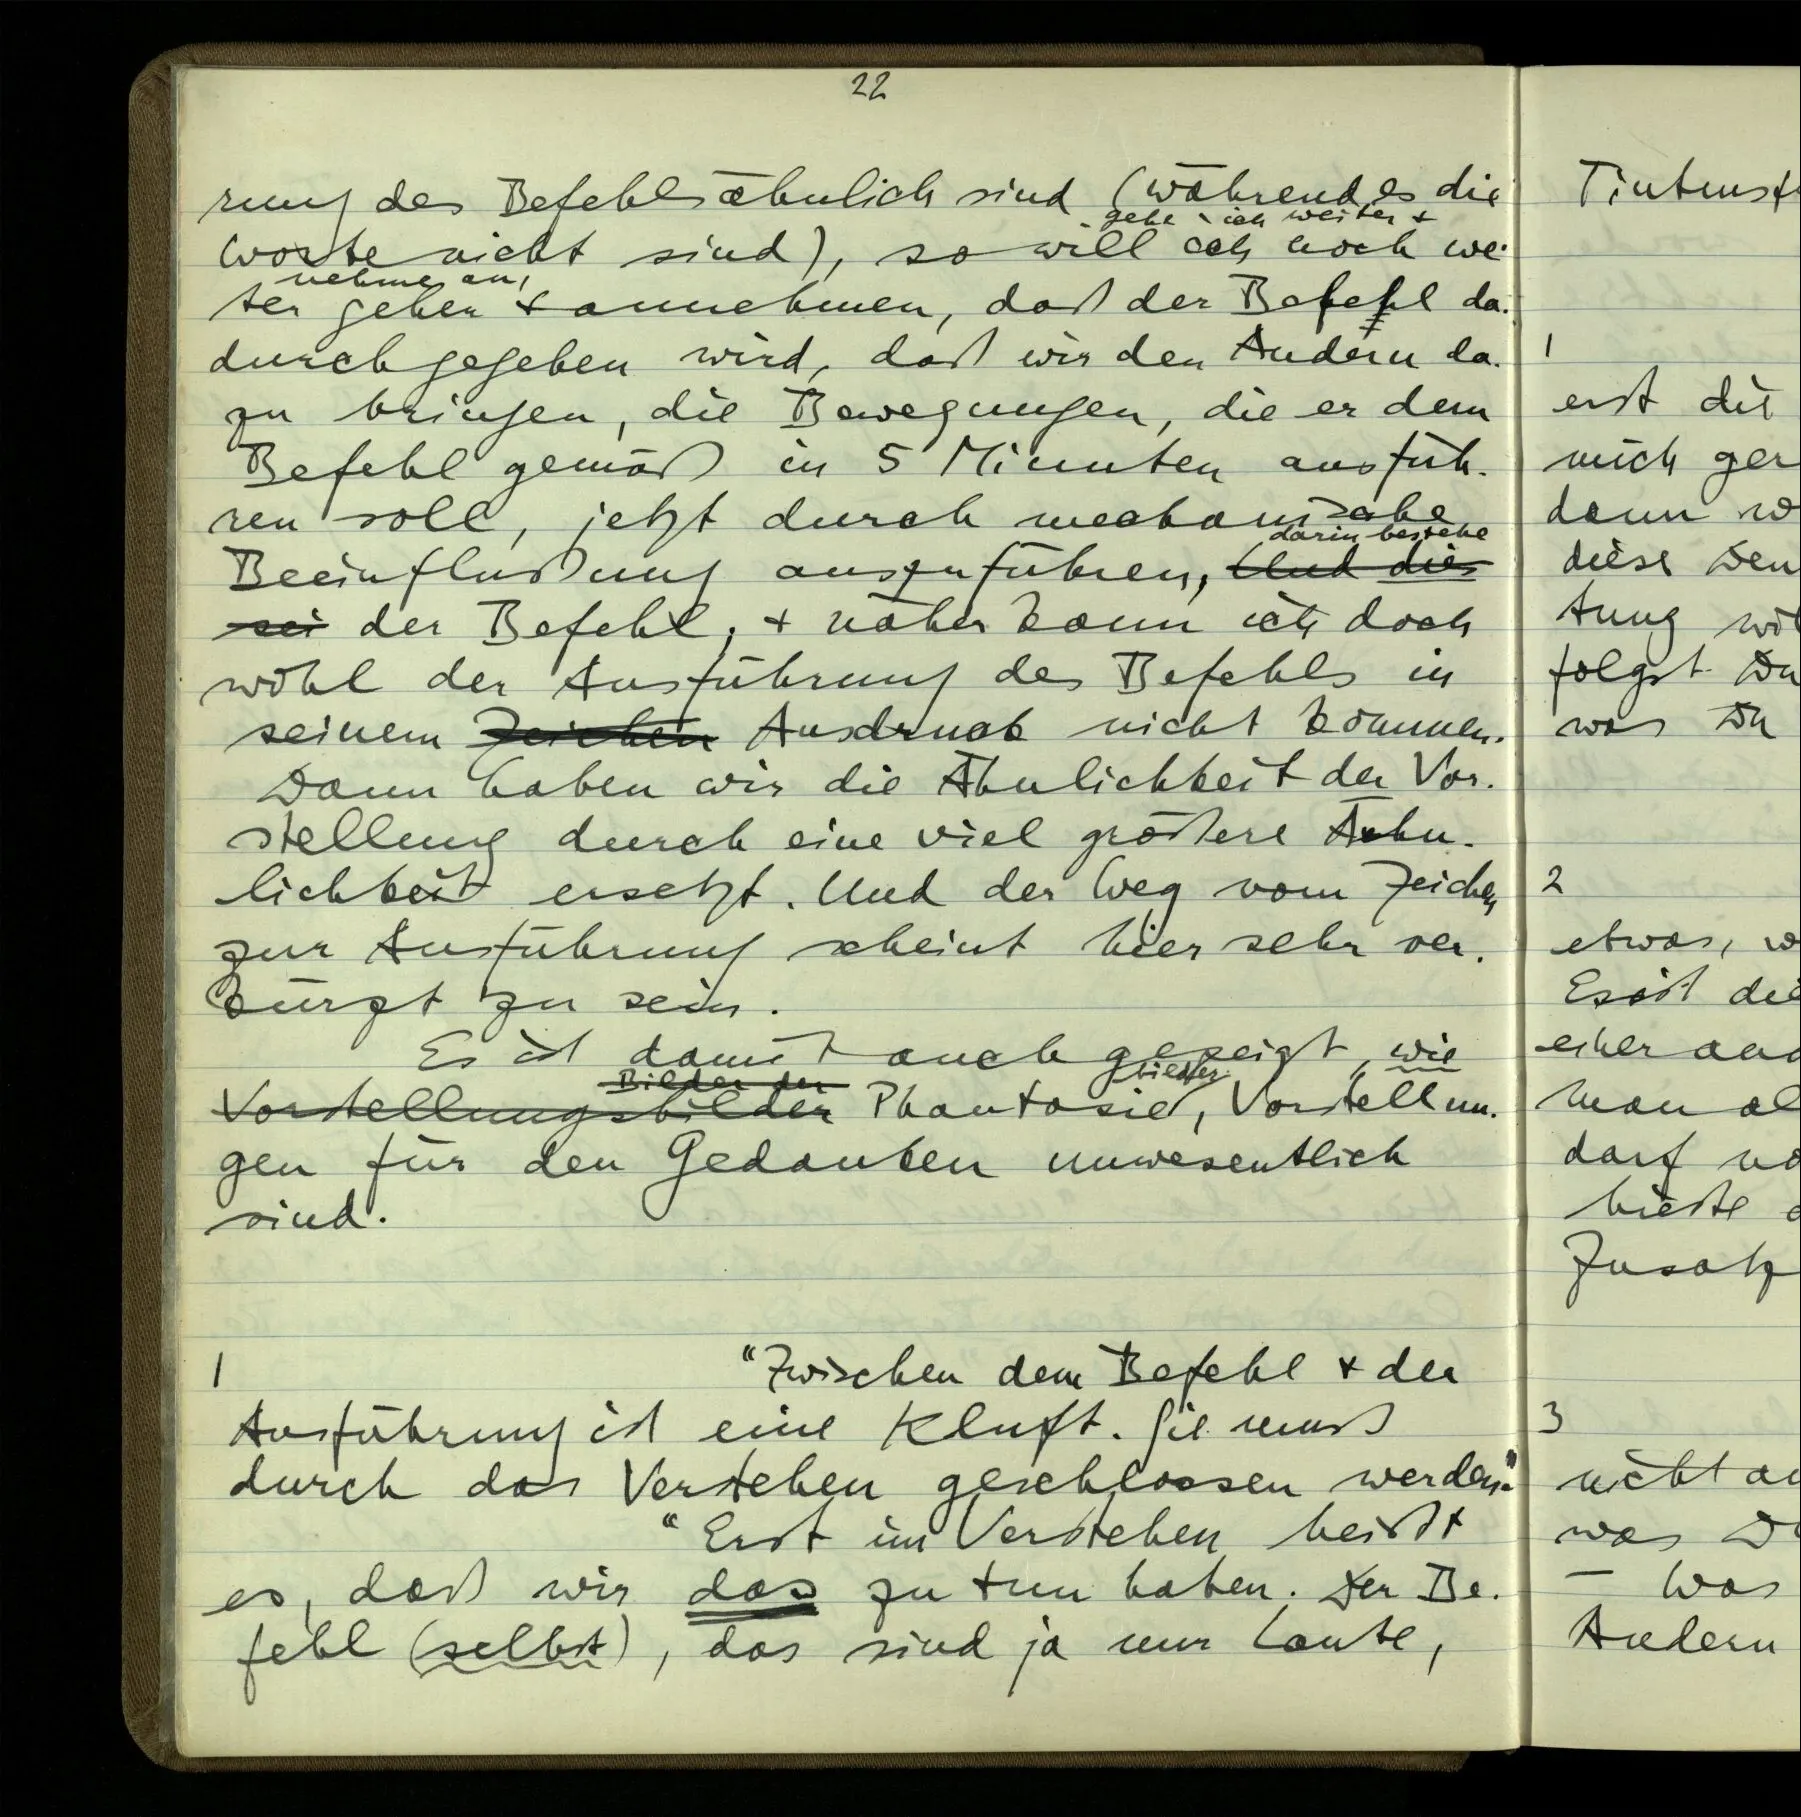 22
rung des Befehls ähnlich sind (während es die
gehe ich weiter +
Worte nicht sind), so will ich noch wei-
nehme an,
ter gehen + annehmen, daß der Befehl da-
durch gegeben wird, daß wir den Andern da-
zu bringen, die Bewegungen, die er dem
Befehl gemäß in 5 Minuten ausfüh-
ren soll, jetzt durch mechanische
darin bestehe
Beeinflußung auszuführen, Und dies
sei der Befehl, + näher kann ich doch
wohl der Ausführung des Befehls in
seinem Zeichen Ausdruck nicht kommen.
Dann haben wir die Ähnlichkeit der Vor-
stellung durch eine viel größere Ähn-
lichkeit ersetzt. Und der Weg vom Zeichen
zur Ausführung scheint hier sehr ver-
kürzt zu sein.
Es ist damit auch gezeigt, wie
Bilder der bilder
Vorstellungsbilder Phantasie, Vorstellun-
gen für den Gedanken unwesentlich
sind.
1 "Zwischen dem Befehl + der
Ausführung ist eine Kluft. Sie muß
durch das Verstehen geschlossen werden."
"Erst im Verstehen heißt
es, daß wir das zu tun haben. Der Be-
fehl (selbst), das sind ja nur Laute,
Tintenst
1
erst die
mich ger
dann w
diese Den
tung wöl
folgst Du
was Du
2
etwas, w
Es ist die
einer and
man al
darf no
hieße d
Zusatz
3
nicht an
was Du
– Was
Andern